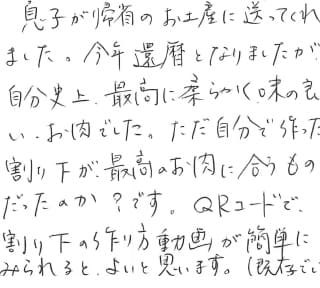 息子が帰省のお土産に送ってくれ
ました。今年還暦となりましたが
自分史上、最高に柔らかく味の良
い、お肉でした。ただ自分で作った
割り下が、最高のお肉に合うもの
だったのか？です。QRコードで、
割り下の作り方動画が簡単に
みられると、よいと思います。(既存でし